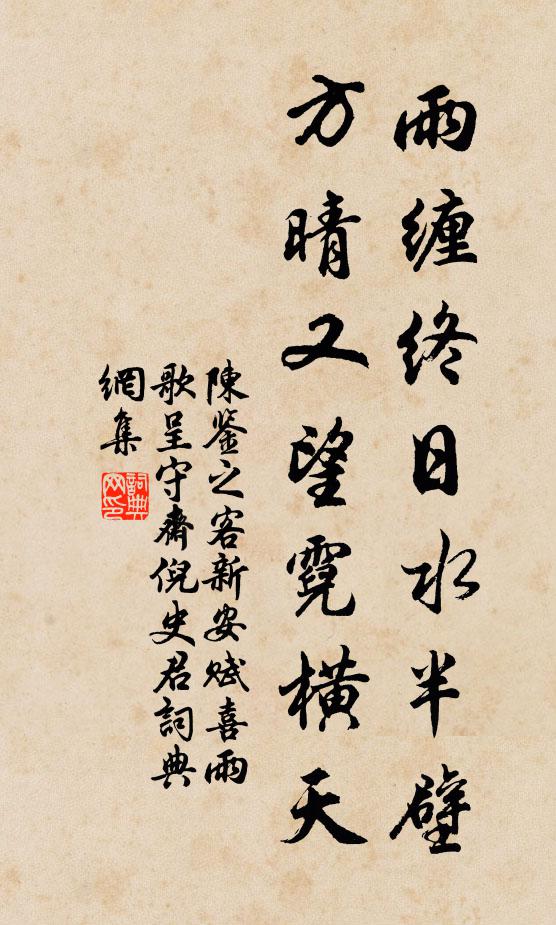 雨缠终日水半壁
方晴又望霓横天
陳鉴之客新安赋喜雨
歌呈守齋倪史君詞典
網集
詞典
网印